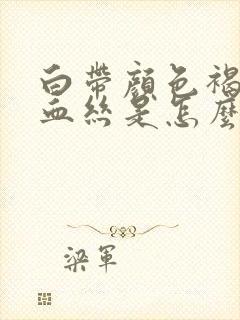 白帶顏色褐
血絲是怎麼
梁軍